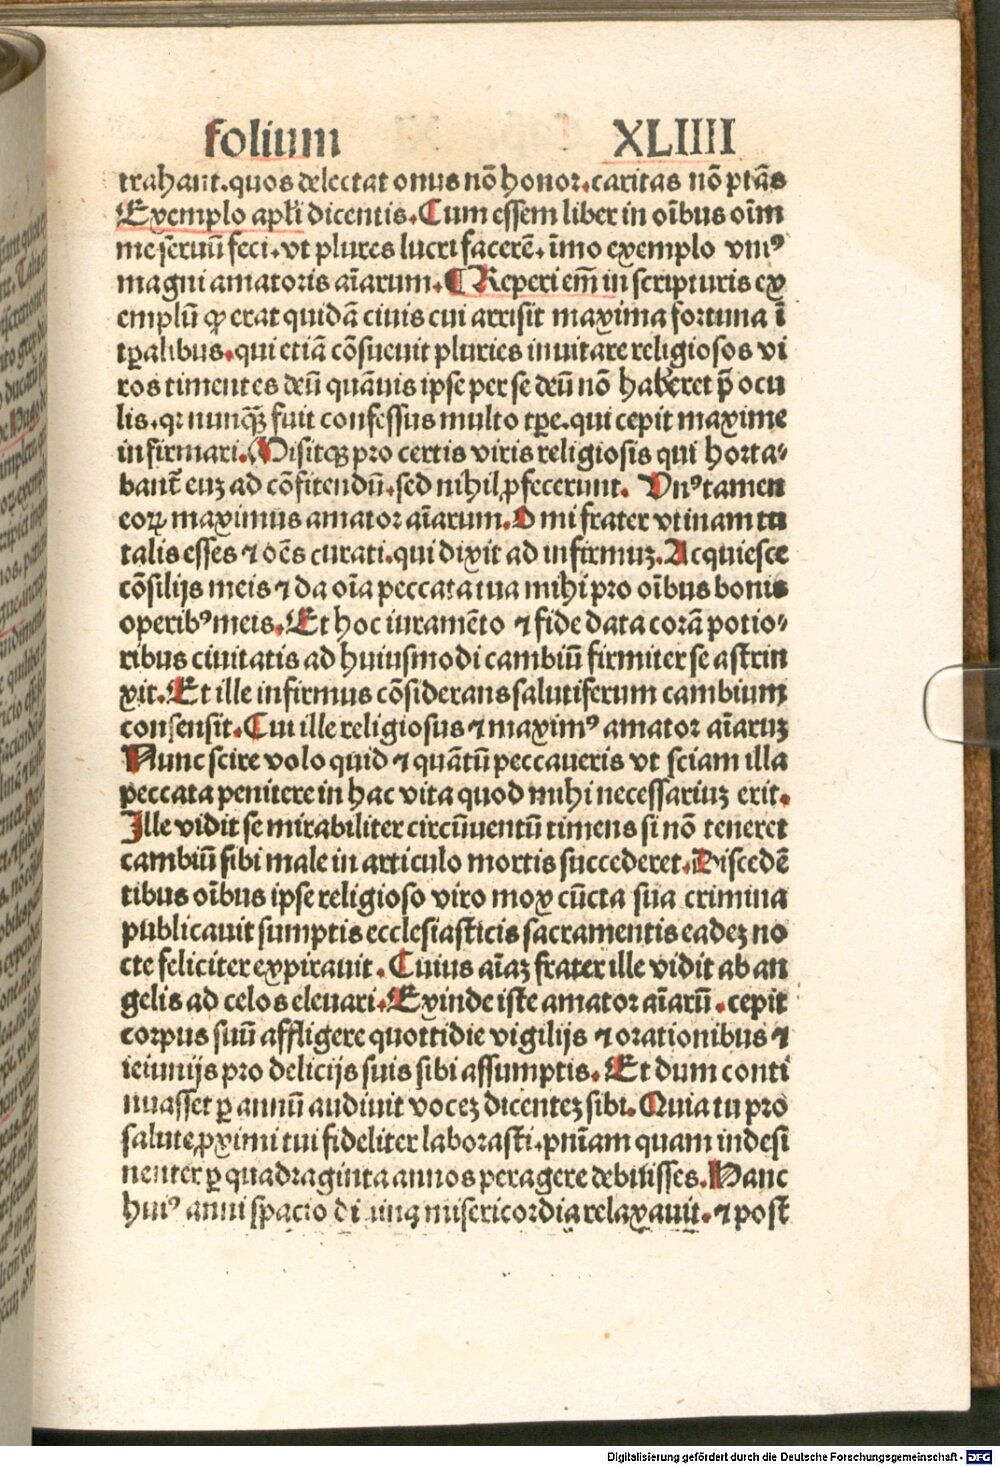 folium XLIIII
trahant.quos delectat onus nō honor.caritas nō ptās
Exemplo apłi dicentis.Cum essem liber in oībus oīm
me seruū feci.vt plures lucri facerē.īmo exemplo vniꝰ
magni amatoris aīarum.¶ Reperi em̄ in scripturis ex
emplū ꝙ erat quidā ciuis cui arrisit maxima fortuna ī
tꝑalibus.qui etiā cōsueuit pluries inuitare religiosos vi
ros timentes deū quāuis ipse per se deū nō haberet p̄ ocu
lis.qꝛ nunqꝫ̄ fuit confessus multo tꝑe.qui cepit maxime
infirmari.Misitqꝫ pro certis viris religiosis qui horta⸗
bant̄ euꝫ ad cōfitendū.sed nihil ꝓfecerunt. Vnꝰ tamen
eoꝝ maximus amator aīarum.O mi frater vtinam tu
talis esses ⁊ oēs curati.qui dixit ad infirmuꝫ.Acquiesce
cōsilijs meis ⁊ da oīa peccata tua mihi pro oībus bonis
operibꝰ meis.Et hoc iuramēto ⁊ fide data corā potio⸗
ribus ciuitatis ad huiusmodi cambiū firmiter se astrin
xit.Et ille infirmus cōsiderans salutiferum cambium
consensit.Cui ille religiosus ⁊ maximꝰ amator aīaruꝫ
Nunc scire volo quid ⁊ quātū peccaueris vt sciam illa
peccata penitere in hac vita quod mihi necessariuꝫ erit.
Ille vidit se mirabiliter circūuentū timens si nō teneret
cambiū sibi male in articulo mortis succederet.Discedē
tibus oībus ipse religioso viro mox cūcta sua crimina
publicauit sumptis ecclesiasticis sacramentis eadeꝫ no
cte feliciter expirauit.Cuius aīaꝫ frater ille vidit ab an
gelis ad celos eleuari.Exinde iste amator aīarū.cepit
corpus suū affligere quottidie vigilijs ⁊ orationibus ⁊
ieiunijs pro delicijs suis sibi assumptis. Et dum conti
nuasset ꝑ annū audiuit voceꝫ dicenteꝫ sibi.Quia tu pro
salute ꝓximi tui fideliter laborasti.pn̄iam quam indesi
nenter ꝑ quadraginta annos peragere debuisses.Hanc
huiꝰ anni spacio diuina misericordia relaxauit.⁊ post
Digitalisierung gefördert durch die Deutsche Forschungsgemeinschaft - DFG